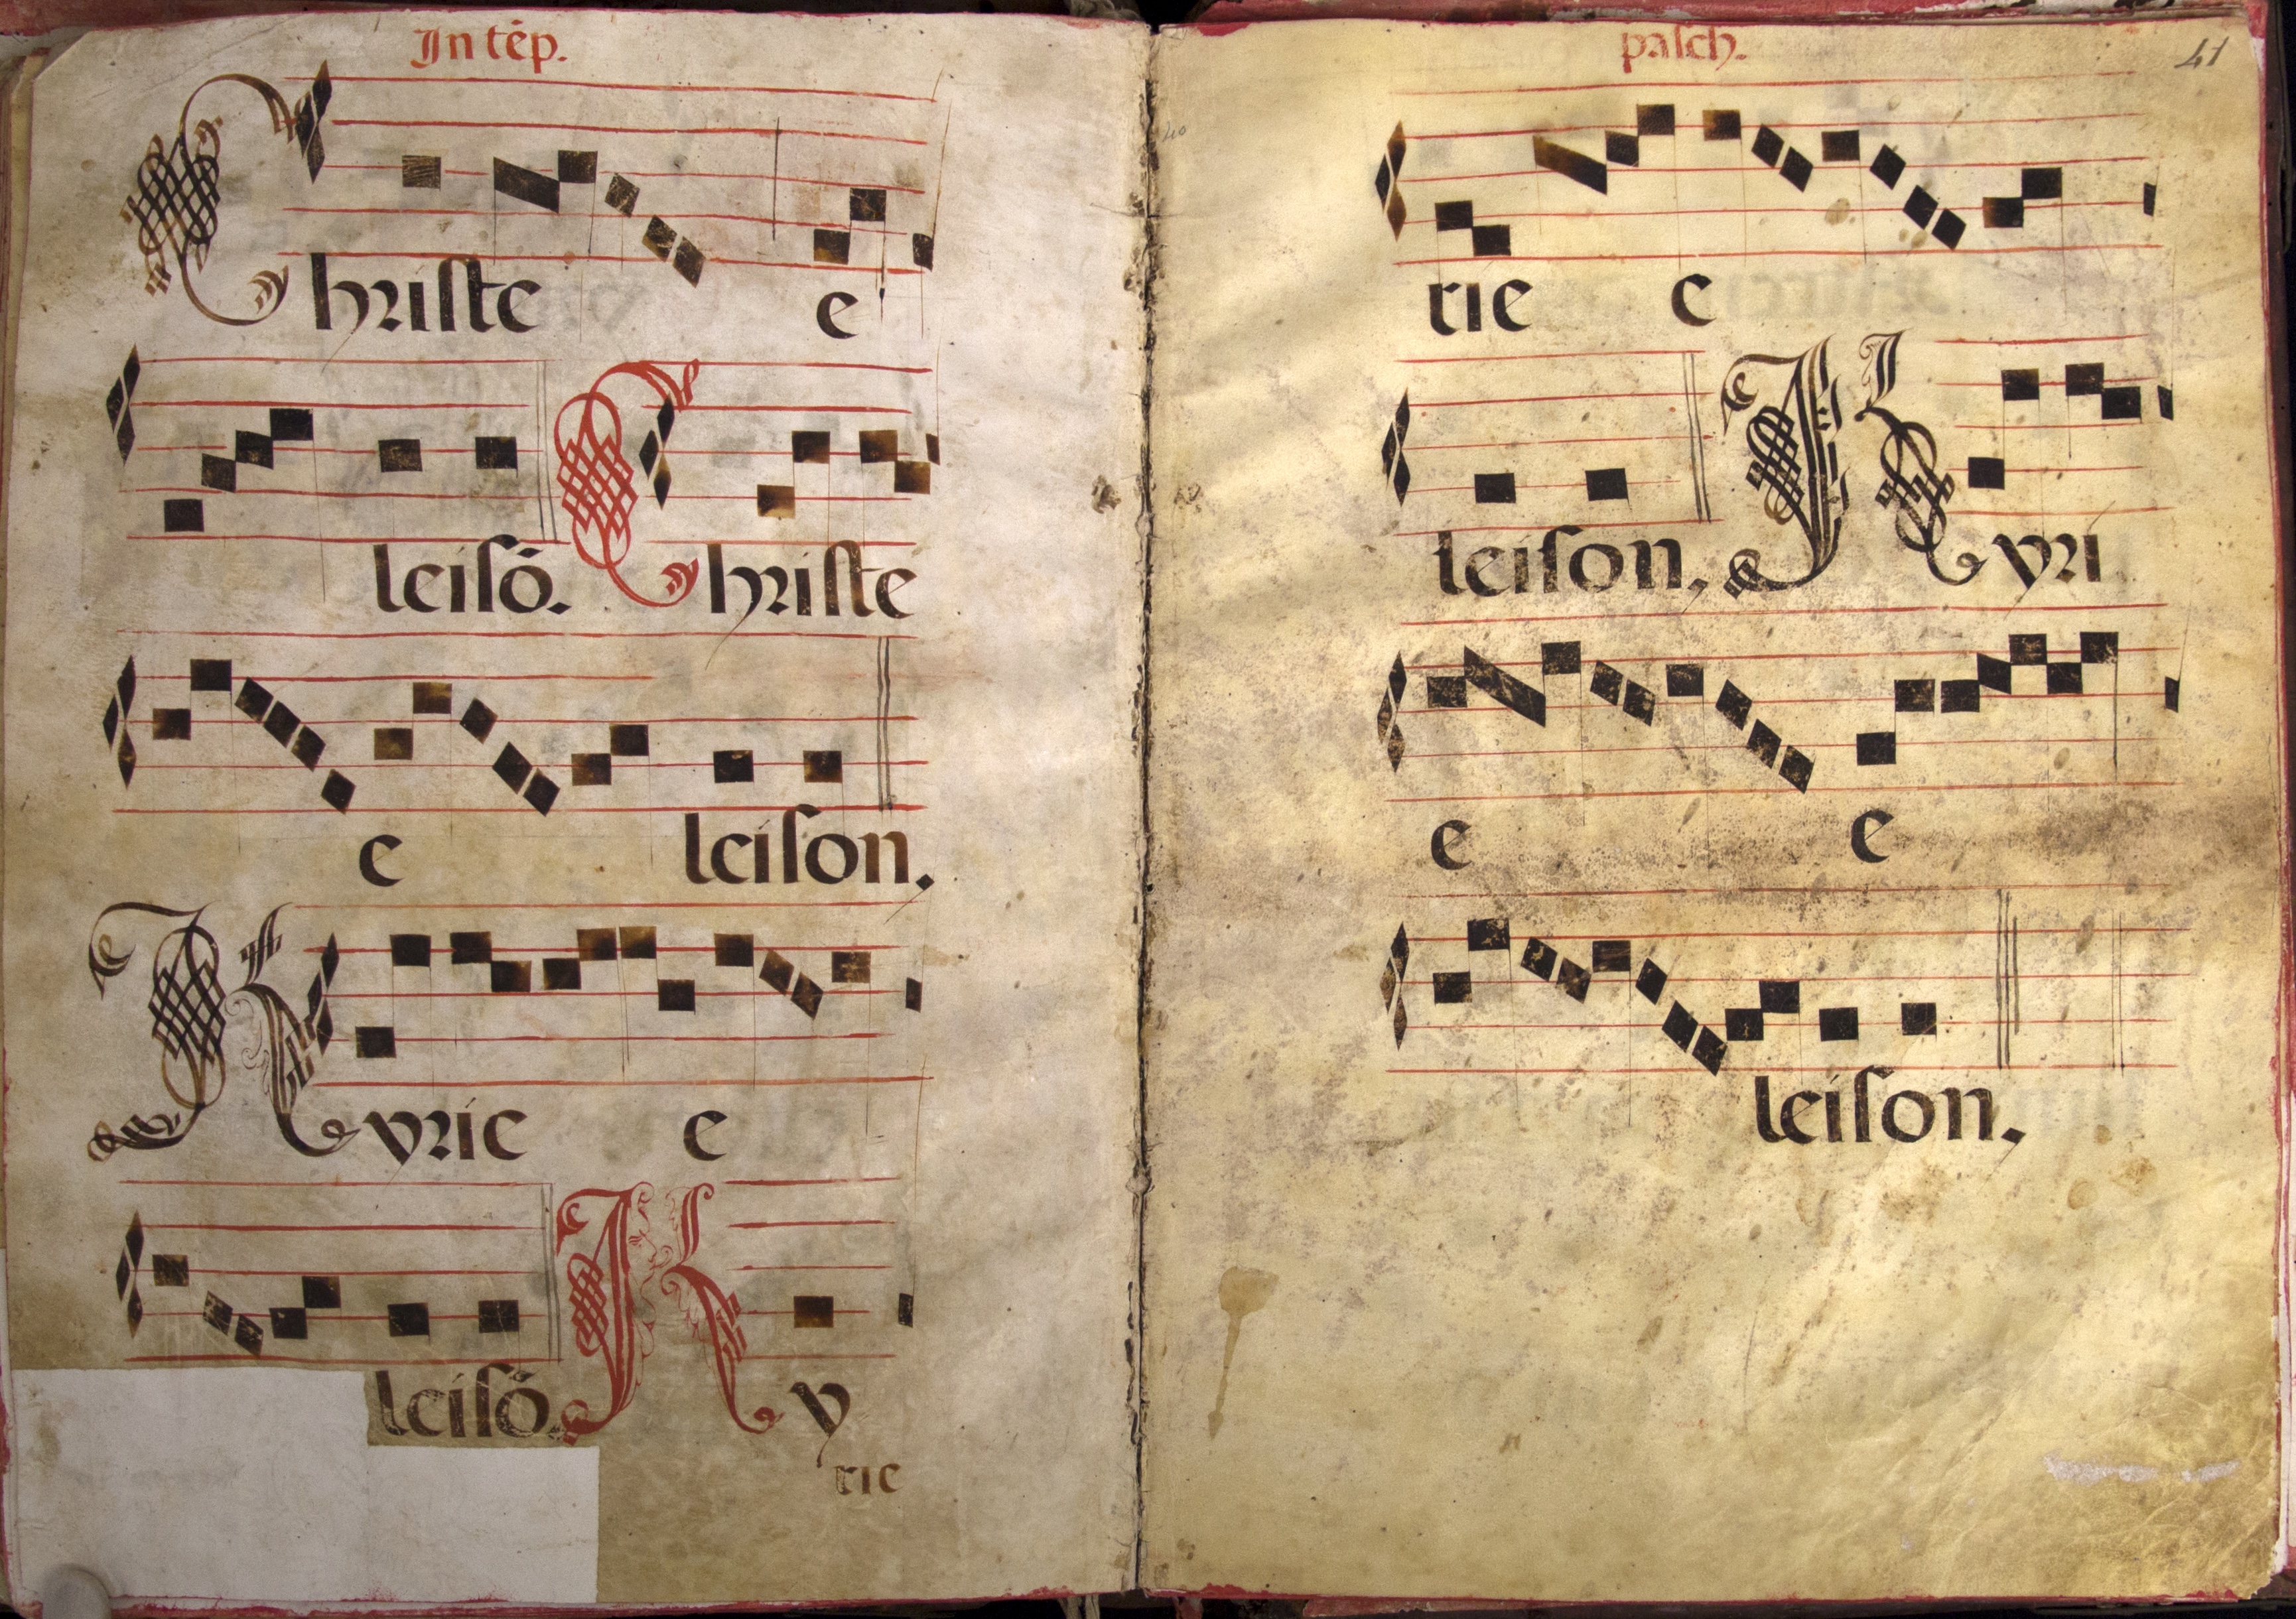 In tēp.
Christe e
leisō. Christe
e leison.
Kyrie e
leisō. Ky
rie
pasch. 41
40
rie e
leison. Kyri
e e
leison.